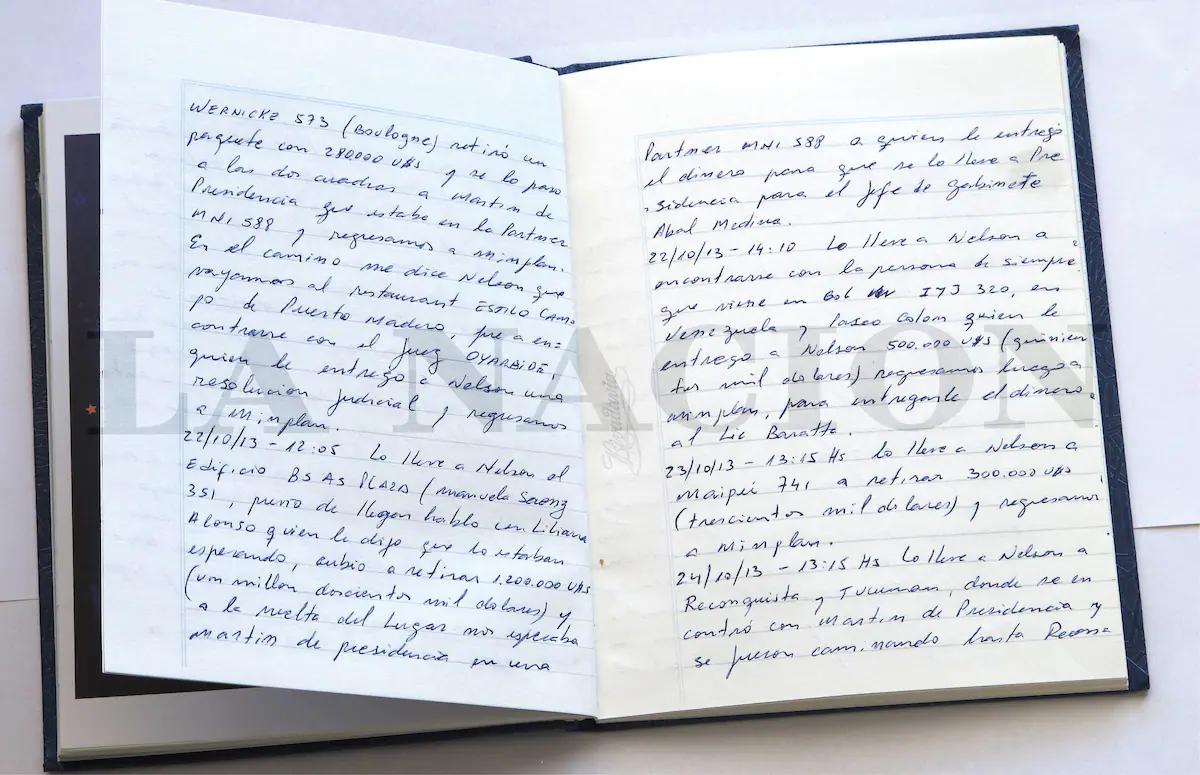 WERNICKE 573 (Boulogne) retiró un
paquete con 280.000 U$S y se lo paso
a las dos cuadras a Martin de
Presidencia que estaba en la Partner
MNI 588 y regresamos a Minplan.
En el camino me dice Nelson que
vayamos al restaurant ESTILO CAM
po de Puerto Madero, para en=
contrarse con el Juez OYARBIDE,
quien le entrego a Nelson una
resolucion judicial y regresamos
a Minplan.
22/10/13 - 12:05 Lo lleve a Nelson al
Edificio BS AS PLAZA (Manuela Saenz
351, antes de llegar hablo con Liliana
Alonso quien le dijo que lo estaban
esperando, subio a retirar 1.200.000 U$S
(un millon doscientos mil dolares) y
a la vuelta del lugar nos esperaba
Martin de presidencia en una
Partner MNI 588 a quien le entregó
el dinero para que se lo lleve a Pre
sidencia para el Jefe de gabinete
Abal Medina.
22/10/13 - 14:10 Lo lleve a Nelson a
encontrarse con la persona de siempre
que viene en Gol IYJ 320, en
Venezuela y Paseo Colon quien le
entrego a Nelson 500.000 U$S (quinien
tos mil dolares) regresamos luego a
Minplan, para entregarle el dinero
al Lic Baratta.
23/10/13 - 13:15 Hs Lo lleve a Nelson a
Maipú 741 a retirar 300.000 U$S
(trescientos mil dolares) y regresamos
a Minplan.
24/10/13 - 13:15 Hs Lo lleve a Nelson a
Reconquista y Tucuman, donde se en
contró con Martin de Presidencia y
se fueron caminando hasta Recons
LA NACION